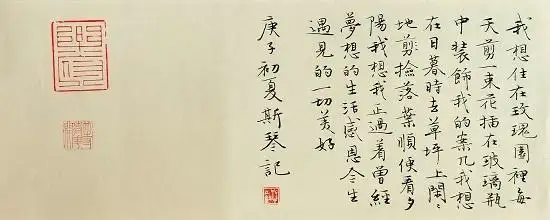 我想住在玫瑰園裡每
天剪一束花插在玻璃瓶
中裝飾我的案几我想
在日暮時去草坪上閑〻
地剪撿落葉順便看夕
陽我想我正過着曾經
夢想的生活感恩今生
遇見的一切美好
庚子初夏斯琴記